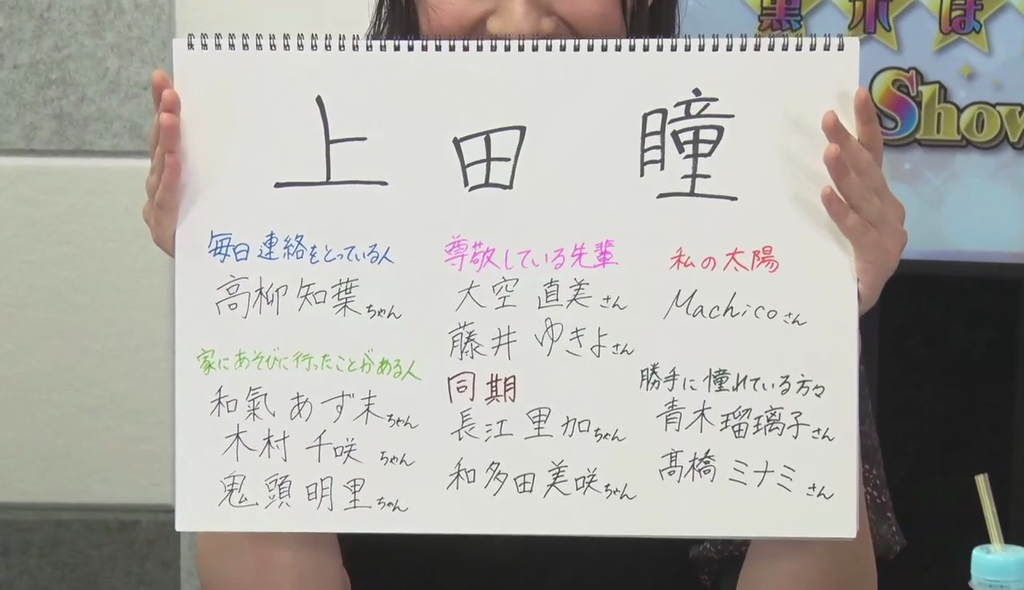 黒木ほ
Show
上田 瞳
毎日連絡をとっている人
高柳知葉ちゃん
家にあそびに行ったことがある人
和氣あず未ちゃん
木村千咲ちゃん
鬼頭明里ちゃん
尊敬している先輩
大空直美さん
藤井ゆきよさん
同期
長江里加ちゃん
和多田美咲ちゃん
私の太陽
Machicoさん
勝手に憧れている方々
青木瑠璃子さん
髙橋ミナミさん